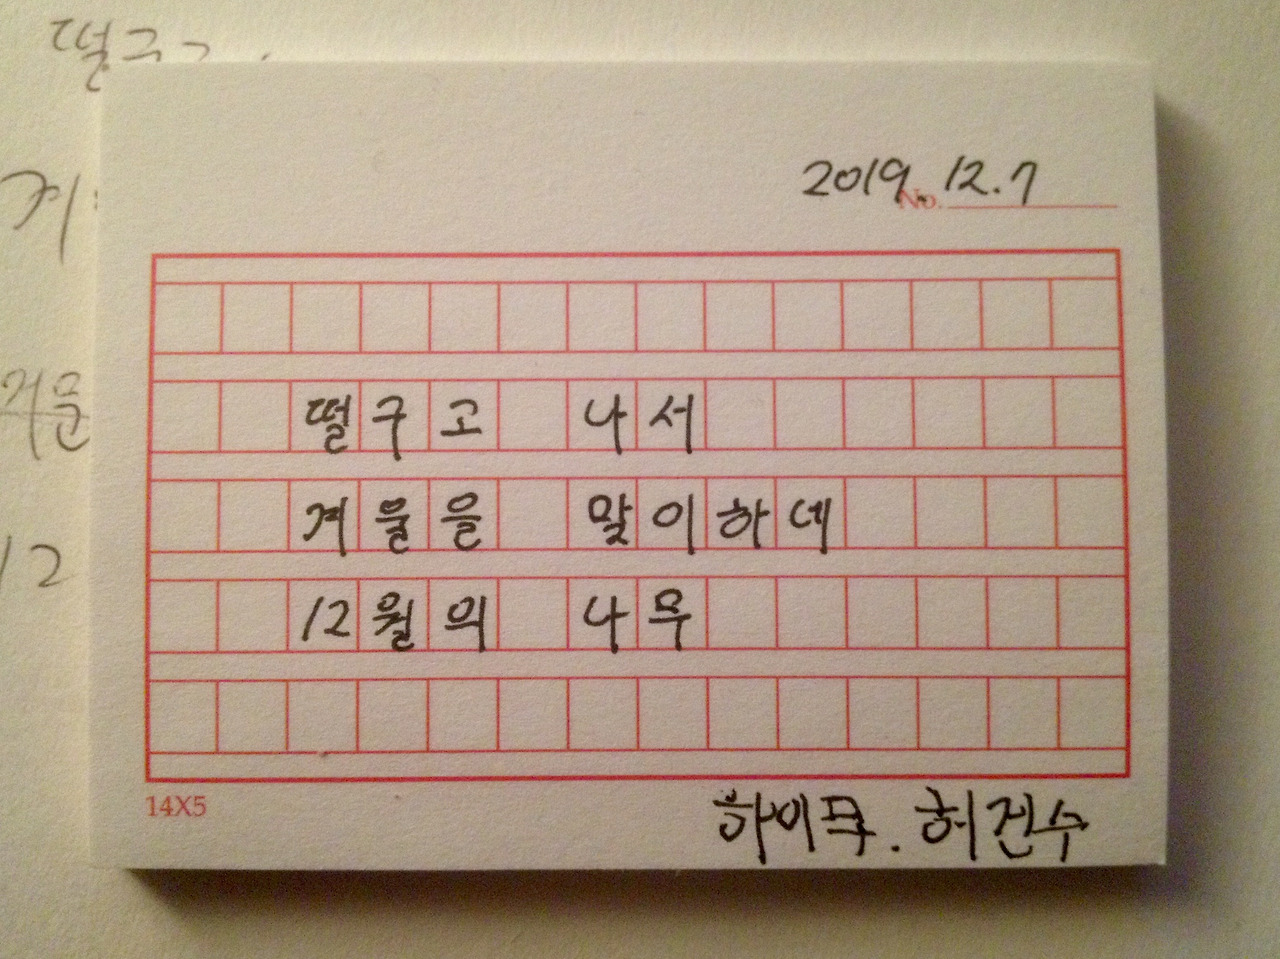 떨구
겨
2019. 12. 7
No.
떨구고 나서
겨울을 맞이하네
겨울
12월의 나무
12
14X5
하이쿠. 허진수